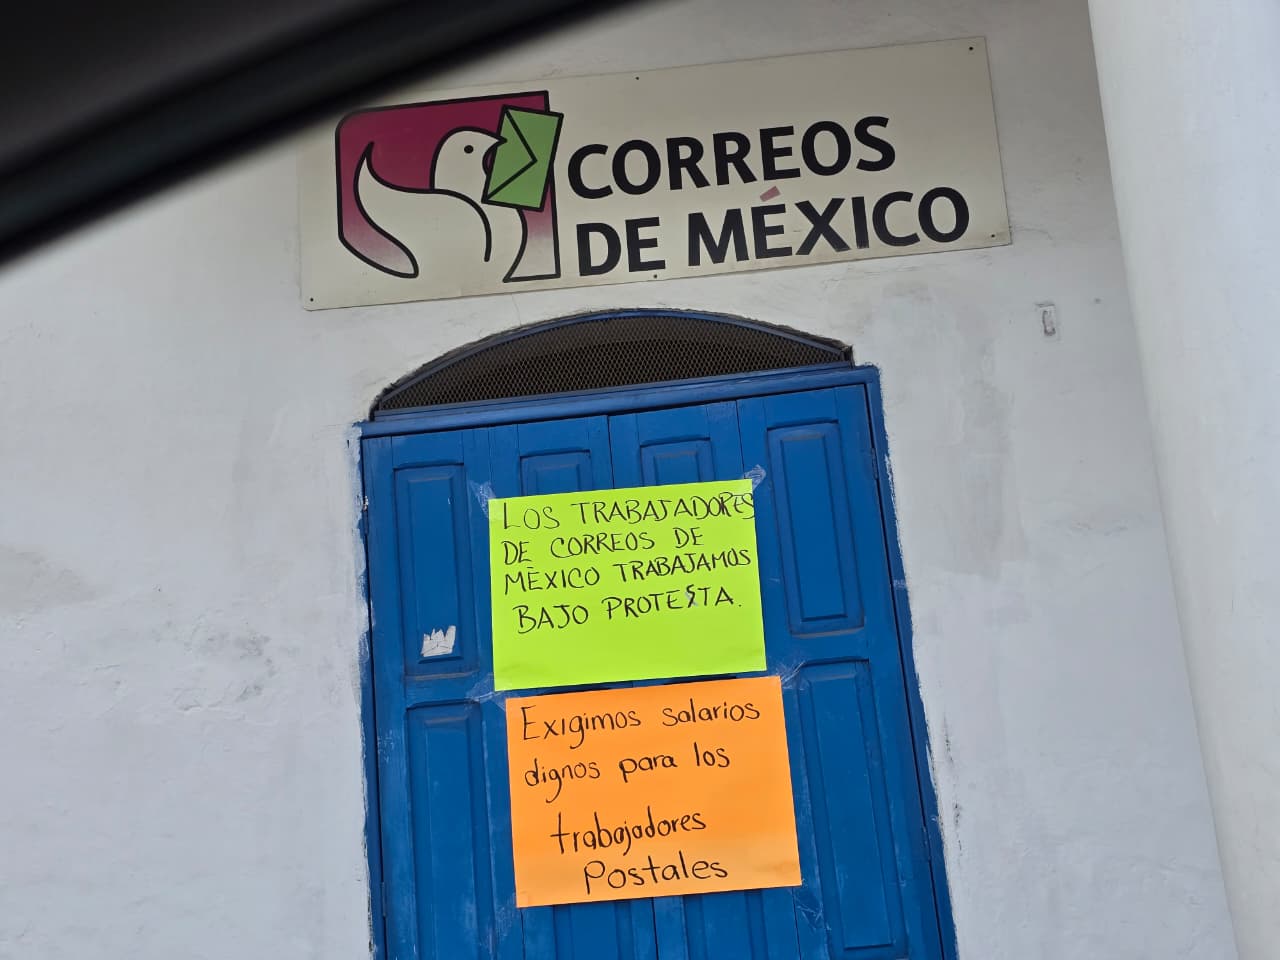 CORREOS
DE MÉXICO
LOS TRABAJADORES
DE CORREOS DE
MÈXICO TRABAJAMOS
BAJO PROTESTA.
Exigimos salarios
dignos para los
trabajadores
Postales